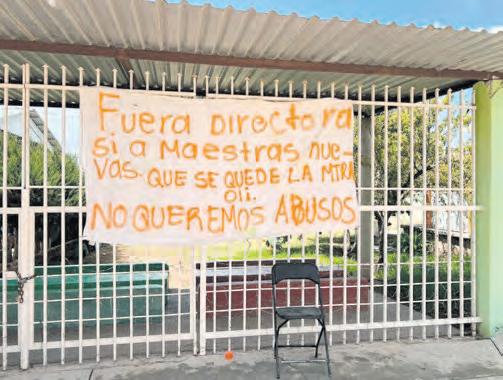 Fuera Directora
si a Maestras nue-
vas. QUE SE QUEDE LA MTRA
Oli.
NO QUEREMOS ABUSOS